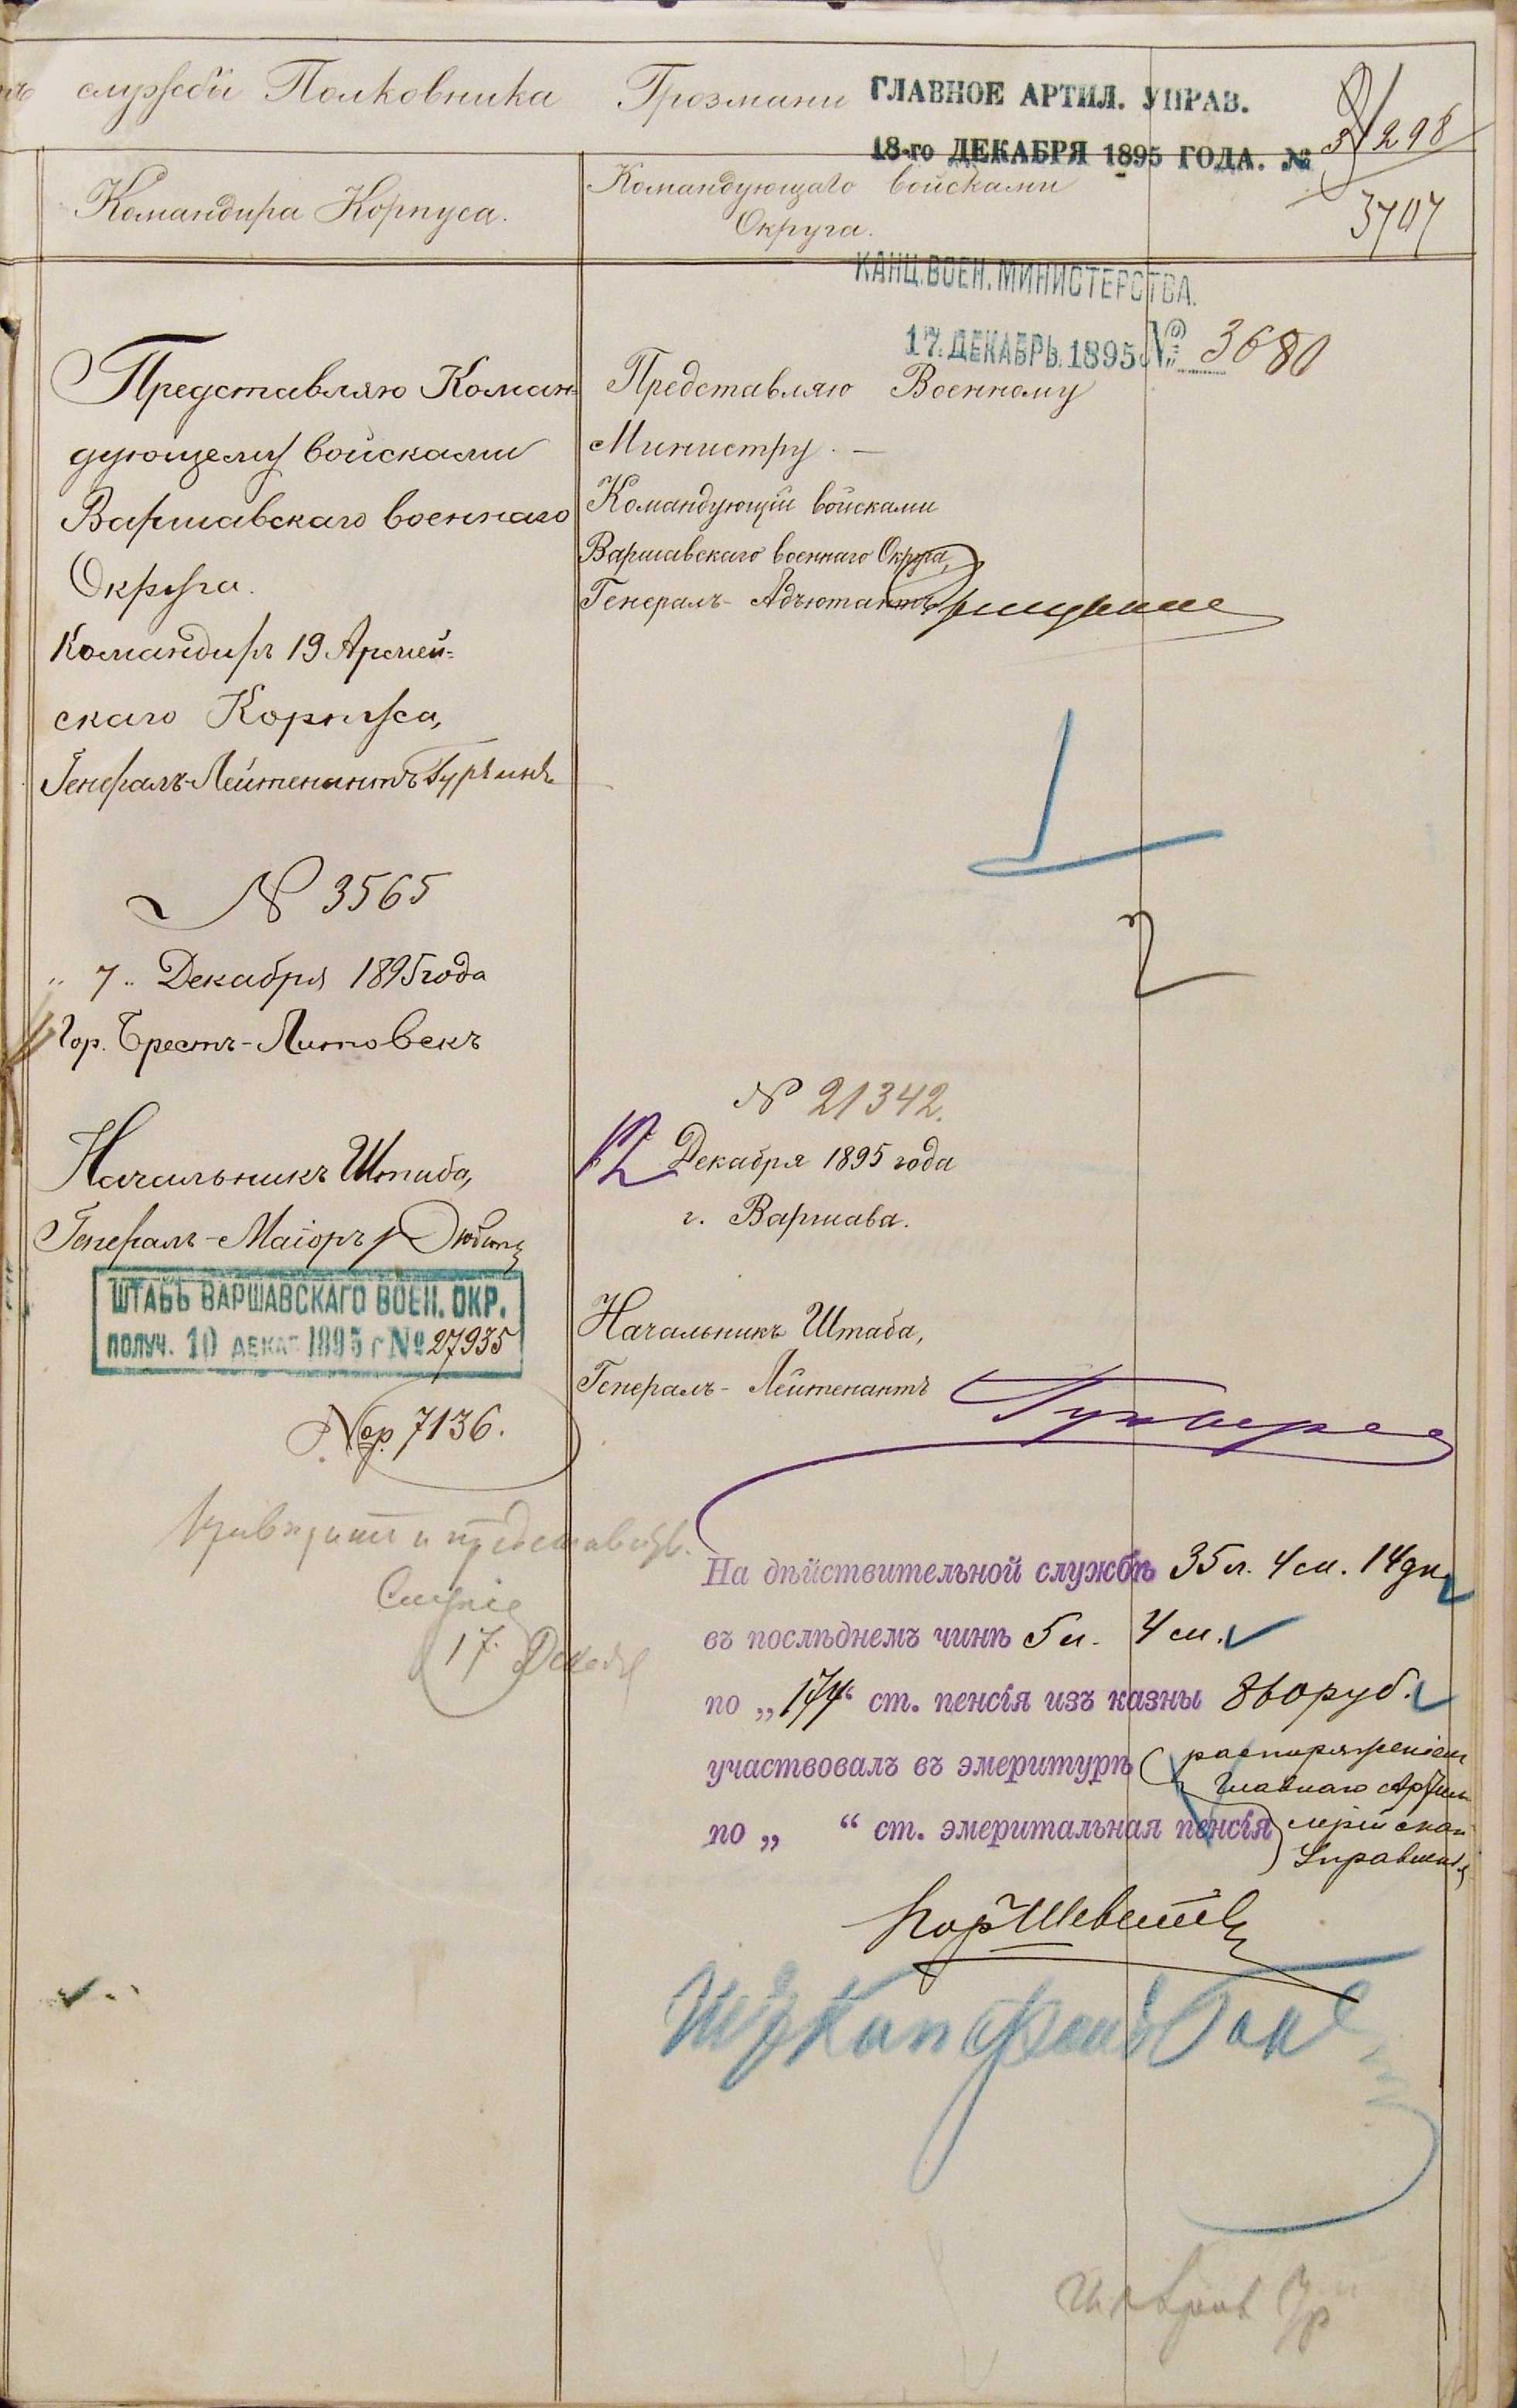 службы Полковника Грозмани
ГЛАВНОЕ АРТИЛ. УПРАВ.
18-го ДЕКАБРЯ 1895 ГОДА. №
3/298
3707
Командира Корпуса.
Командующаго войсками
Округа.
КАНЦ. ВОЕН. МИНИСТЕРСТВА.
17. ДЕКАБРЬ. 1895 № 3680
Представляю Коман-
дующему войсками
Варшавскаго военнаго
Округа.
Командиръ 19 Армей-
скаго Корпуса,
Генералъ-Лейтенантъ
№ 3565
„ 7 „ Декабря 1895 года
Гор. Брестъ-Литовскъ
Начальникъ Штаба,
Генералъ-Маіоръ
ШТАБЪ ВАРШАВСКАГО ВОЕН. ОКР.
ПОЛУЧ. 10 ДЕКАБ 1895 г № 27935
7136.
Представляю Военному
Министру. —
Командующій войсками
Варшавскаго военнаго Округа,
Генералъ-Адъютантъ
№ 21342.
12 Декабря 1895 года
г. Варшава.
Начальникъ Штаба,
Генералъ-Лейтенантъ
17
На дѣйствительной службѣ 35 л. 4 м. 14 дн.
въ послѣднемъ чинѣ 5 л. 4 м.
по „177“ ст. пенсія изъ казны 860 руб.
участвовалъ въ эмеритурѣ распоряженіем
Главнаго Артил
по „ “ ст. эмеритальная пенсія лерійскаго
Управленія